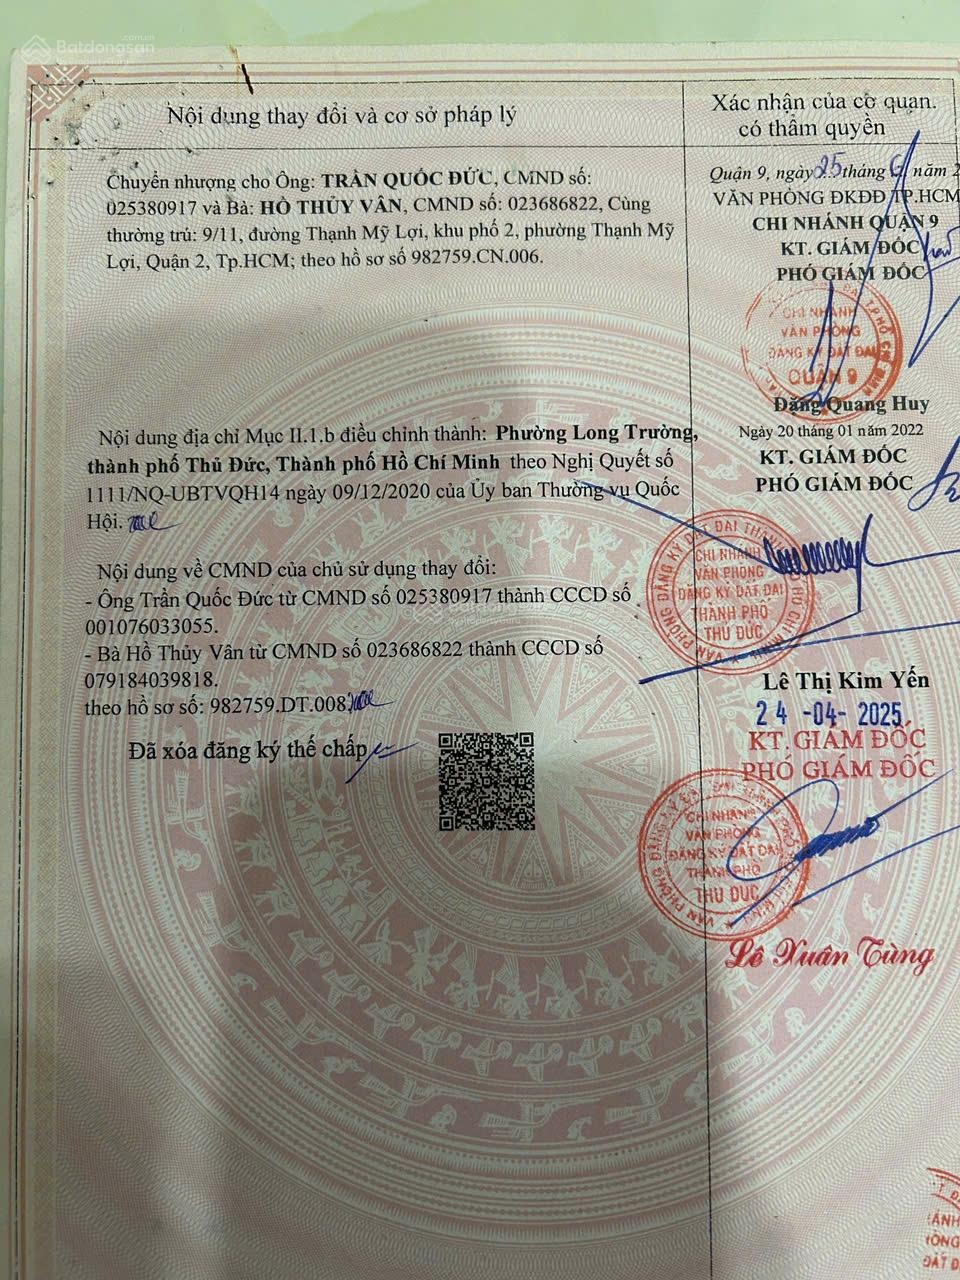 Batdongsan
.com.vn
Nội dung thay đổi và cơ sở pháp lý
Xác nhận của cơ quan.
có thẩm quyền
Chuyển nhượng cho Ông: TRẦN QUỐC ĐỨC, CMND số:
025380917 và Bà: HỒ THỦY VÂN, CMND số: 023686822, Cùng
thường trú: 9/11, đường Thạnh Mỹ Lợi, khu phố 2, phường Thạnh Mỹ
Lợi, Quận 2, Tp.HCM; theo hồ sơ số 982759.CN.006.
Quận 9, ngày 25 tháng 6 năm 2
VĂN PHÒNG ĐKĐĐ TP.HCM
CHI NHÁNH QUẬN 9
KT. GIÁM ĐỐC
PHÓ GIÁM ĐỐC
CHI NHÁNH
VĂN PHÒNG
ĐĂNG KÝ ĐẤT ĐAI
QUẬN 9
Đặng Quang Huy
Nội dung địa chỉ Mục II.1.b điều chỉnh thành: Phường Long Trường,
thành phố Thủ Đức, Thành phố Hồ Chí Minh theo Nghị Quyết số
1111/NQ-UBTVQH14 ngày 09/12/2020 của Ủy ban Thường vụ Quốc
Hội.
Ngày 20 tháng 01 năm 2022
KT. GIÁM ĐỐC
PHÓ GIÁM ĐỐC
CHI NHÁNH
VĂN PHÒNG
ĐĂNG KÝ ĐẤT ĐAI
THÀNH PHỐ
THỦ ĐỨC
Nội dung về CMND của chủ sử dụng thay đổi:
- Ông Trần Quốc Đức từ CMND số 025380917 thành CCCD số
001076033055.
- Bà Hồ Thủy Vân từ CMND số 023686822 thành CCCD số
079184039818.
theo hồ sơ số: 982759.DT.008.
Lê Thị Kim Yến
Đã xóa đăng ký thế chấp
24 -04- 2025
KT. GIÁM ĐỐC
PHÓ GIÁM ĐỐC
CHI NHÁNH
VĂN PHÒNG
ĐĂNG KÝ ĐẤT ĐAI
THÀNH PHỐ
THỦ ĐỨC
Lê Xuân Tùng